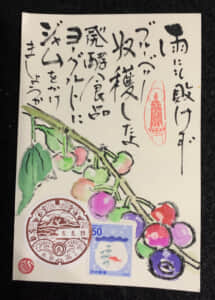 雨にも敗けず
ブルーベリー
収穫したよ
発酵食品
ヨーグルトに
ジャムをかけ
ましょうか
50